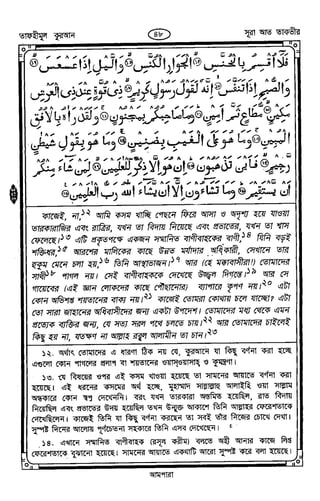 তাফহীমুল কুরআন ৪৮ সূরা আত তাকভীর
فَلَا أُقْسِمُ بِالْخُنَّسِ ﴿١٥﴾ الْجَوَارِ الْكُنَّسِ ﴿١٦﴾ وَاللَّيْلِ إِذَا عَسْعَسَ ﴿١٧﴾
وَالصُّبْحِ إِذَا تَنَفَّسَ ﴿١٨﴾ إِنَّهُ لَقَوْلُ رَسُولٍ كَرِيمٍ ﴿١٩﴾ ذِي قُوَّةٍ عِنْدَ ذِي الْعَرْشِ
مَكِينٍ ﴿٢٠﴾ مُطَاعٍ ثَمَّ أَمِينٍ ﴿٢١﴾ وَمَا صَاحِبُكُمْ بِمَجْنُونٍ ﴿٢٢﴾ وَلَقَدْ رَآهُ بِالْأُفُقِ
الْمُبِينِ ﴿٢٣﴾ وَمَا هُوَ عَلَى الْغَيْبِ بِضَنِينٍ ﴿٢٤﴾ وَمَا هُوَ بِقَوْلِ شَيْطٰنٍ
رَجِيمٍ ﴿٢٥﴾ فَأَيْنَ تَذْهَبُونَ ﴿٢٦﴾ إِنْ هُوَ إِلَّا ذِكْرٌ لِلْعٰلَمِينَ ﴿٢٧﴾ لِمَنْ شَاءَ مِنْكُمْ
أَنْ يَسْتَقِيمَ ﴿٢٨﴾ وَمَا تَشَاءُونَ إِلَّا أَنْ يَشَاءَ اللّٰهُ رَبُّ الْعٰلَمِينَ ﴿٢٩﴾
কাজেই, না,১২ আমি কসম খাচ্ছি পেছনে ফিরে আসা ও অদৃশ্য হয়ে যাওয়া
তারকারাজির এবং রাত্রির, যখন তা বিদায় নিয়েছে এবং প্রভাতের, যখন তা শ্বাস
ফেলেছে।১৩ এটি প্রকৃতপক্ষে একজন সম্মানিত বাণীবাহকের বাণী,১৪ যিনি বড়ই
শক্তিধর,১৫ আরশের মালিকের কাছে উন্নত মর্যাদার অধিকারী, সেখানে তার
হুকুম মেনে চলা হয়,১৬ তিনি আস্থাভাজন।১৭ আর (হে মক্কাবাসীরা!) তোমাদের
সাথী১৮ পাগল নয়। সেই বাণীবাহককে দেখেছে উজ্জ্বল দিগন্তে।১৯ আর সে
গায়েবের (এই জ্ঞান লোকদের কাছে পৌঁছানোর) ব্যাপারে কৃপণ নয়।২০ এটা
কোন অভিশপ্ত শয়তানের বাক্য নয়।২১ কাজেই তোমরা কোথায় চলে যাচ্ছো? এটা
তো সারা জাহানের অধিবাসীদের জন্য একটা উপদেশ। তোমাদের মধ্য থেকে এমন
প্রত্যেক ব্যক্তির জন্য, যে সত্য সরল পথে চলতে চায়।২২ আর তোমাদের চাইলেই
কিছু হয় না, যতক্ষণ না আল্লাহ রব্বুল আলামীন তা চান।২৩
১২. অর্থাৎ তোমাদের এ ধারণা ঠিক নয় যে, কুরআনে যা কিছু বর্ণনা করা হচ্ছে
এগুলো কোন পাগলের প্রলাপ বা শয়তানের ওয়াসওয়াসাহ ও কুমন্ত্রণা।
১৩. যে বিষয়ের ওপর এই কসম খাওয়া হয়েছে তা সামনের আয়াতে বর্ণনা করা
হয়েছে। এই ধরনের কসমের অর্থ হচ্ছে, মুহাম্মাদ সাল্লাল্লাহু আলাইহি ওয়া সাল্লাম
অন্ধকারে কোন স্বপ্ন দেখেননি। বরং যখন তারকারা অস্তমিত হয়েছিল, রাত বিদায়
নিয়েছিল এবং প্রভাতের উদয় হয়েছিল তখন উন্মুক্ত আকাশে তিনি আল্লাহর ফেরেশতাকে
দেখেছিলেন। কাজেই তিনি যা কিছু বর্ণনা করছেন তা সবই তাঁর নিজের চোখে দেখা।
সুস্পষ্ট দিনের আলোয় পূর্ণচেতনা সহকারে তিনি এসব দেখেছেন।
১৪. এখানে সম্মানিত বাণীবাহক (রসূল করীম) বলতে অহী আনার কাজে লিপ্ত
ফেরেশতাকে বুঝানো হয়েছে। সামনের আয়াতে একথাটি আরো সুস্পষ্ট করে বলা হয়েছে।
আমপারা